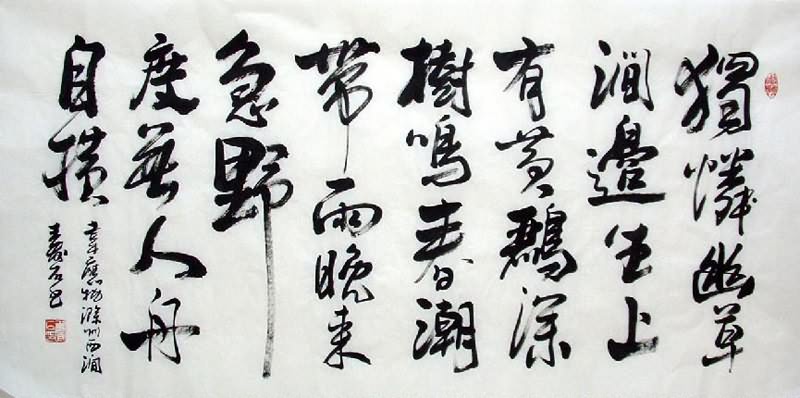 獨憐幽草
澗邊生上
有黄鸝深
樹鳴春潮
帶雨晚來
急野
度無人舟
自横
韋應物滁州西澗